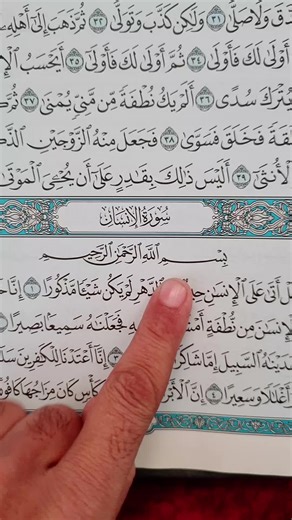 دَّقَ وَلَا صَلَّىٰ ٣١ وَلَٰكِن كَذَّبَ وَتَوَلَّىٰ ٣٢ ثُمَّ ذَهَبَ إِلَىٰ أَهْلِهِ
أَوْلَىٰ لَكَ فَأَوْلَىٰ ٣٤ ثُمَّ أَوْلَىٰ لَكَ فَأَوْلَىٰ ٣٥ أَيَحْسَبُ
يُتْرَكَ سُدًى ٣٦ أَلَمْ يَكُ نُطْفَةً مِّن مَّنِيٍّ يُمْنَىٰ ٣٧
فَخَلَقَ فَسَوَّىٰ ٣٨ فَجَعَلَ مِنْهُ الزَّوْجَيْنِ
وَالْأُنثَىٰ ٣٩ أَلَيْسَ ذَٰلِكَ بِقَٰدِرٍ عَلَىٰ أَن يُحْـِۧيَ الْمَوْتَىٰ
سُورَةُ الْإِنسَانِ
بِسْمِ اللَّهِ الرَّحْمَٰنِ الرَّحِيمِ
أَتَىٰ عَلَى الْإِنسَٰنِ الدَّهْرِ لَمْ يَكُن شَيْـًٔا مَّذْكُورًا ١ إِنَّا
الْإِنسَٰنَ مِن نُّطْفَةٍ فَجَعَلْنَٰهُ سَمِيعًۢا بَصِيرًا
هَدَيْنَٰهُ السَّبِيلَ إِمَّا شَاكِرًا ٣ إِنَّا أَعْتَدْنَا لِلْكَٰفِرِينَ
وَأَغْلَٰلًا وَسَعِيرًا ٤ إِنَّ كَأْسٍ كَانَ مِزَاجُهَا